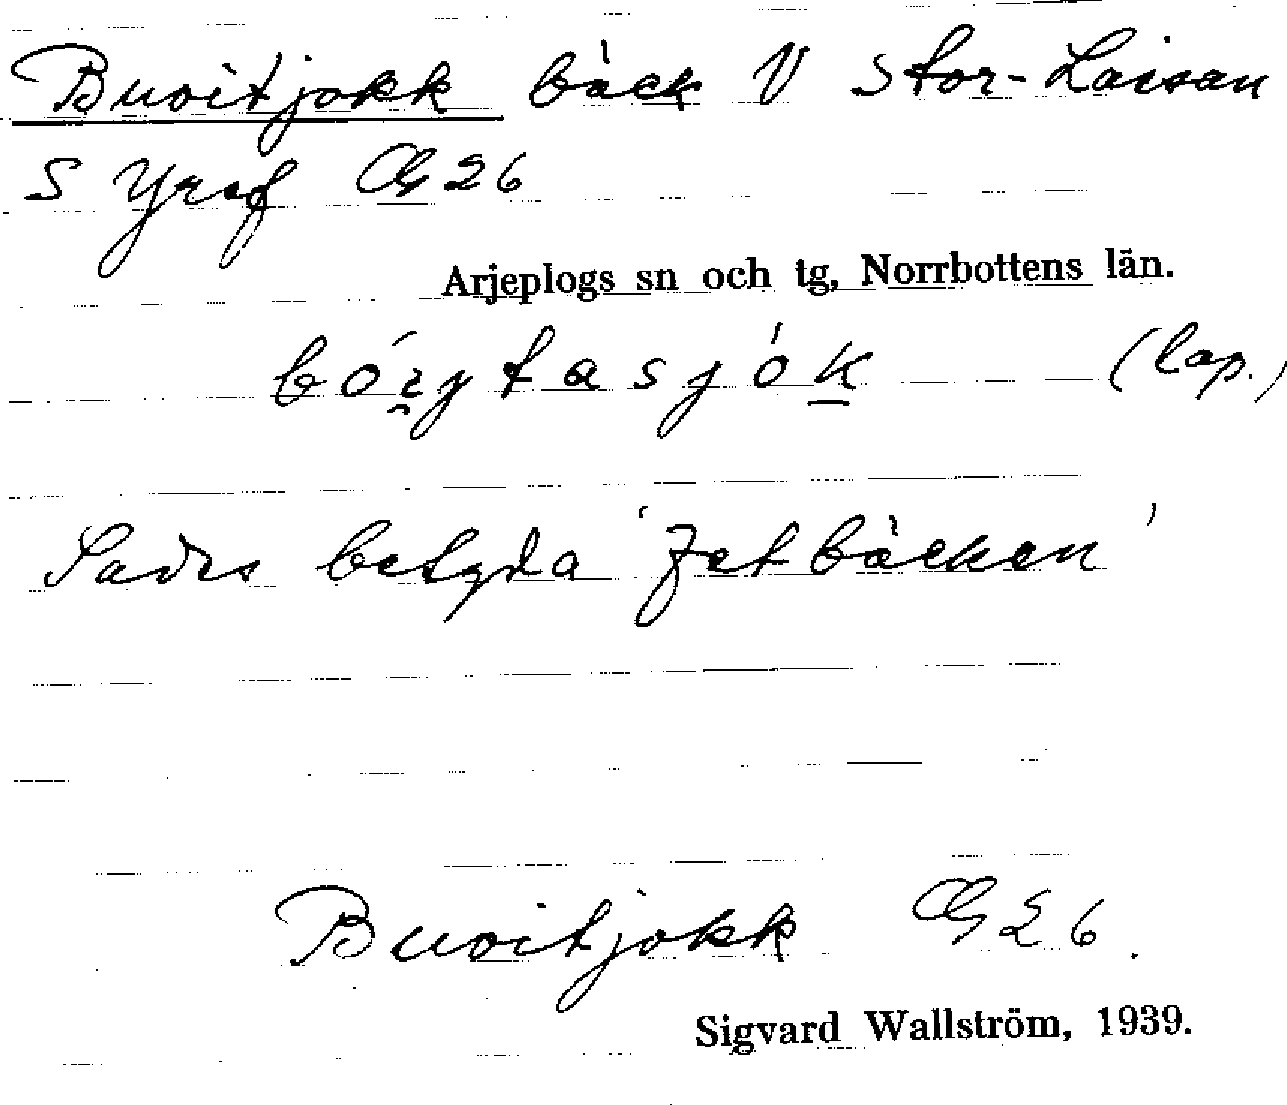 Buoitjokk bäck V Stor-Laisan
S Yraf CG 26
Arjeplogs sn och tg, Norrbottens län.
(lap.)
Sades betyda 'Fetbäcken'
Buoitjokk CG 26.
Sigvard Wallström, 1939.